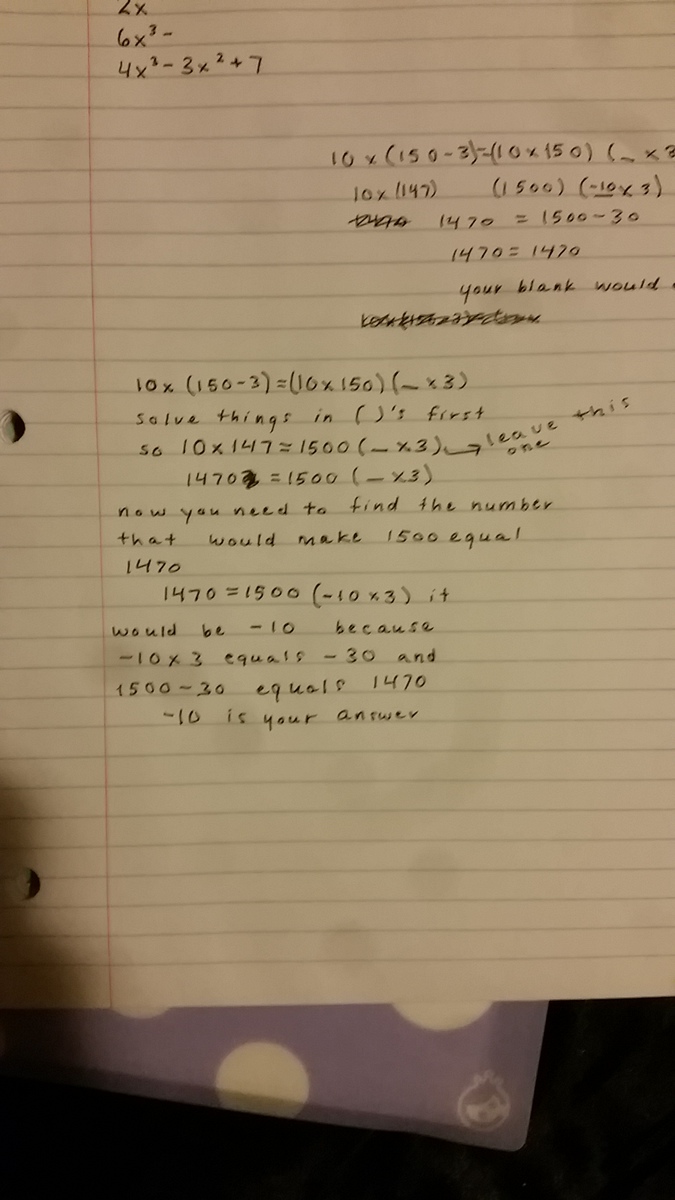 2x
6x³ -
4x³ - 3x² + 7
10 x (150-3)=(10x150) (_ x 3
10 x (147) (1500) (-10x3)
1470 = 1500-30
1470 = 1470
your blank would
10x (150-3)=(10x150)(_x3)
solve things in ( )'s first
so 10x147=1500(_x3) → leave this one
1470 =1500 (_x3)
now you need to find the number
that would make 1500 equal
1470
1470 =1500 (-10x3) it
would be -10 because
-10x3 equals -30 and
1500-30 equals 1470
-10 is your answer